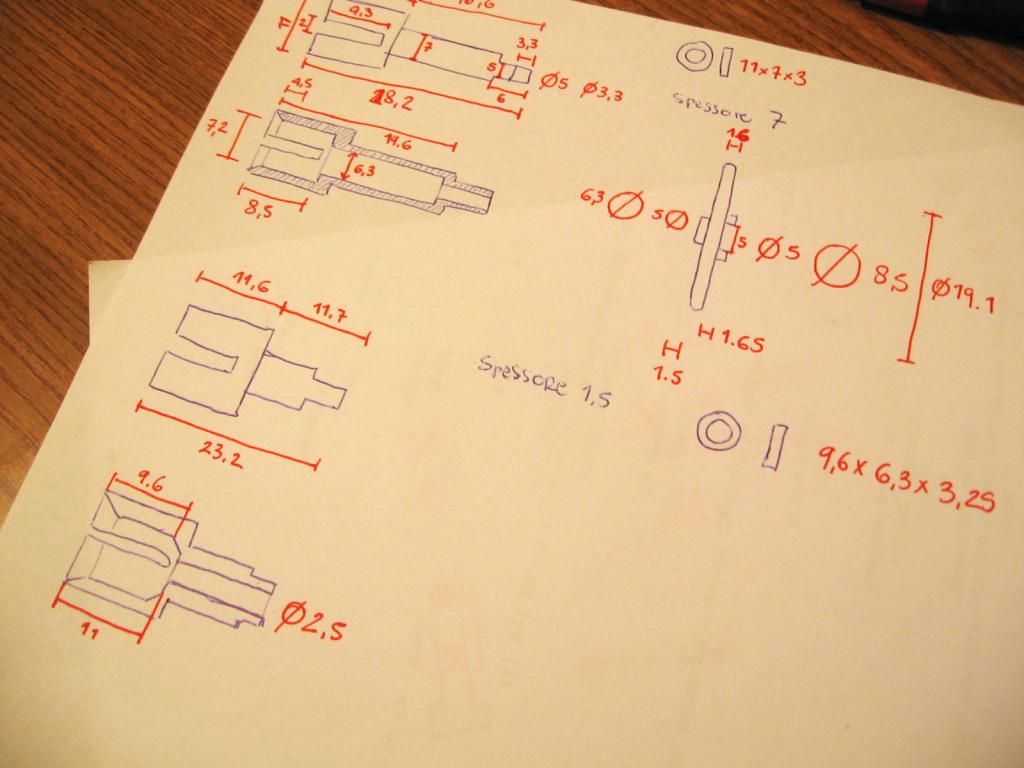 9,3
F
2
7
3,3
5
Ø5 Ø3,3
6
18,2
4,5
7,2
6,3
8,5
11×7×3
Spessore 7
1.6
6,3 Ø 5 Ø
5 Ø5 Ø 8,5
Ø19.1
H 1.65
H
1.5
Spessore 1,5
9,6 x 6,3 x 3,25
11,6
11,7
23,2
9,6
11
Ø2,5